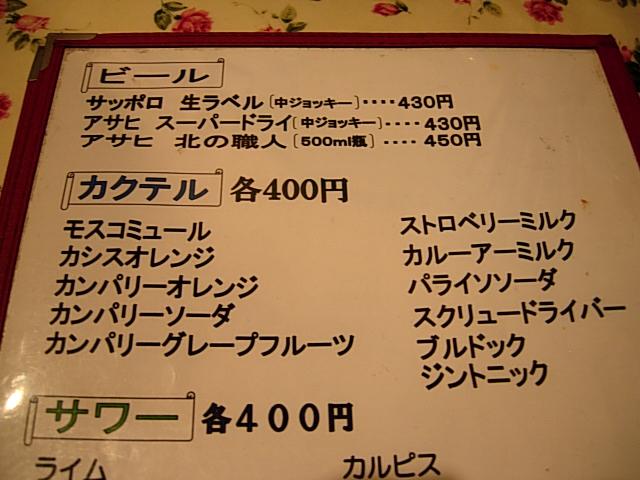 ビール
サッポロ 生ラベル〔中ジョッキー〕････430円
アサヒ スーパードライ〔中ジョッキー〕････430円
アサヒ 北の職人〔500ml瓶〕････450円
カクテル 各400円
モスコミュール
カシスオレンジ
カンパリーオレンジ
カンパリーソーダ
カンパリーグレープフルーツ
ストロベリーミルク
カルーアーミルク
パライソソーダ
スクリュードライバー
ブルドック
ジントニック
サワー 各400円
ライム
カルピス